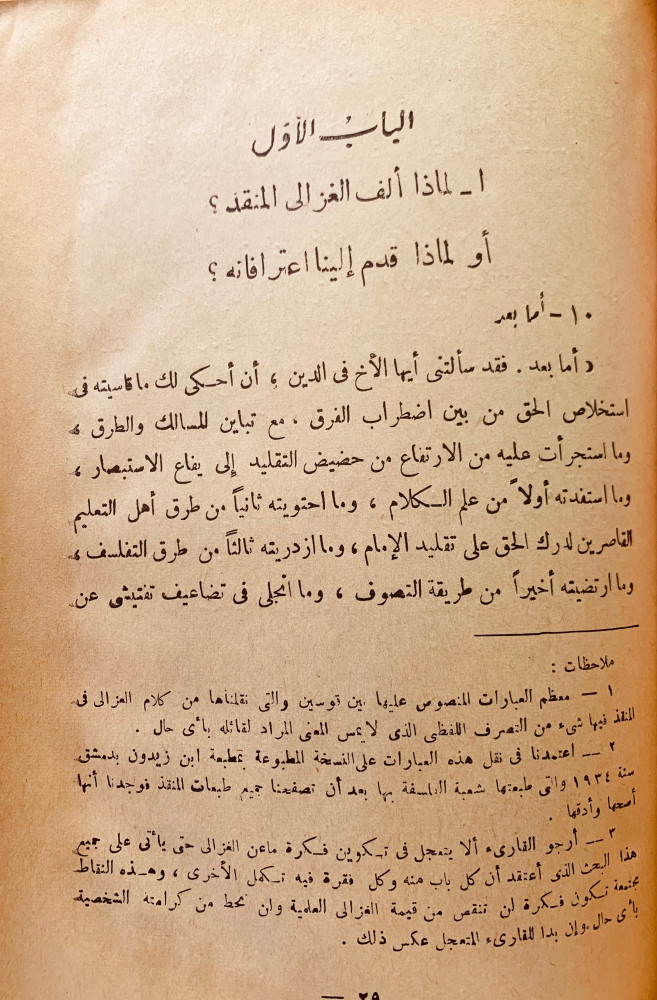 الباب الأول
١ - لماذا ألف الغزالى المنقذ ؟
أو لماذا قدم إلينا اعترافاته ؟
١٠ - أما بعد
« أما بعد . فقد سألتنى أيها الأخ فى الدين ، أن أحكى لك ما قاسيته فى
استخلاص الحق من بين اضطراب الفرق ، مع تباين المسالك والطرق ،
وما استجرأت عليه من الارتفاع من حضيض التقليد إلى يفاع الاستبصار ،
وما استفدته أولاً من علم الكلام ، وما احتويته ثانياً من طرق أهل التعليم
القاصرين لدرك الحق على تقليد الإمام ، وما ازدريته ثالثاً من طرق التفلسف ،
وما ارتضيته أخيراً من طريقة التصوف ، وما انجلى فى تضاعيف تفتيشى عن
ملاحظات :
١ — معظم العبارات المنصوص عليها بين قوسين والتى نقلناها من كلام الغزالى فى
المنقذ فيها شىء من التصرف اللفظى الذى لا يمس المعنى المراد لقائله بأى حال .
٢ — اعتمدنا فى نقل هذه العبارات على النسخة المطبوعة بمطبعة ابن زيدون بدمشق
سنة ١٩٣٤ والتى طبعتها شعبة الفلسفة بها بعد أن تصفحنا جميع طبعات المنقذ فوجدنا أنها
أصحها وأدقها .
٣ — أرجو القارىء ألا يتعجل فى تكوين فكرة ما عن الغزالى حتى يأتى على جميع
هذا البحث الذى أعتقد أن كل باب منه وكل فقرة فيه تكمل الأخرى ، وهذه النقاط
مجتمعة تكون فكرة لن تنقص من قيمة الغزالى العلمية ولن تحط من كرامته الشخصية
بأى حال وإن بدا للقارىء المتعجل عكس ذلك .
— ٢٩